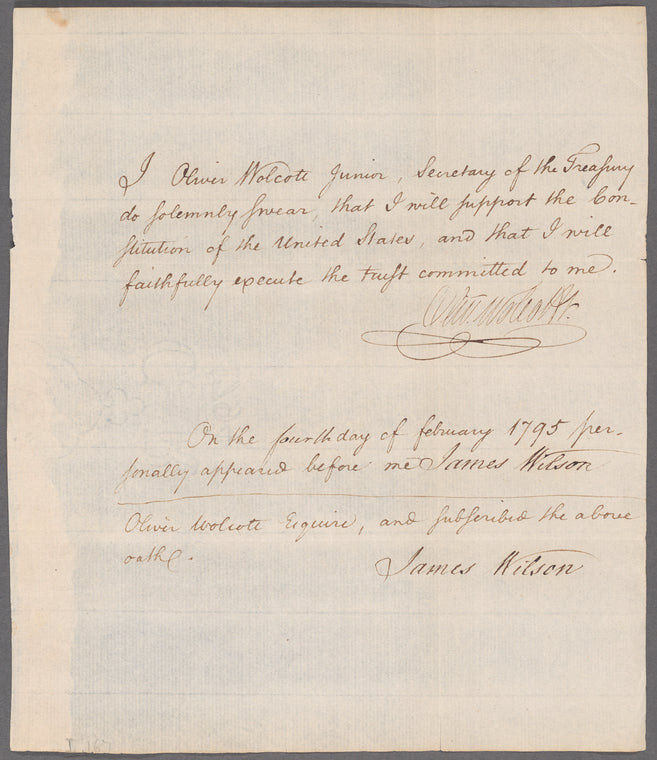 I Oliver Wolcott Junior, Secretary of the Treasury
do solemnly swear, that I will support the Con-
stitution of the United States, and that I will
faithfully execute the trust committed to me.
Oliv. Wolcott Jr.
On the fourth day of february 1795 per-
sonally appeared before me James Wilson
Oliver Wolcott Esquire, and subscribed the above
oath.
James Wilson